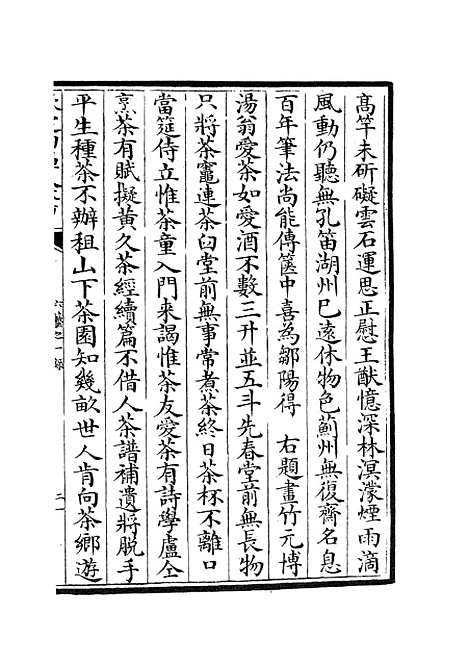 高竿未斫礙雲石運思正慰王猷憶深林溟濛煙雨滴
風動仍聽無孔笛湖州已遠休物色薊州無復齋名息
百年筆法尚能傳篋中喜為鄒陽得　右題畫竹元博
湯翁愛茶如愛酒不數三升並五斗先春堂前無長物
只將茶竈連茶臼堂前無事常煮茶終日茶杯不離口
當筵侍立惟茶童入門來謁惟茶友愛茶有詩學盧仝
烹茶有賦擬黃久茶經續篇不借人茶譜補遺將脫手
平生種茶不辦租山下茶園知幾畝世人肯向茶鄉遊
六藝之一錄